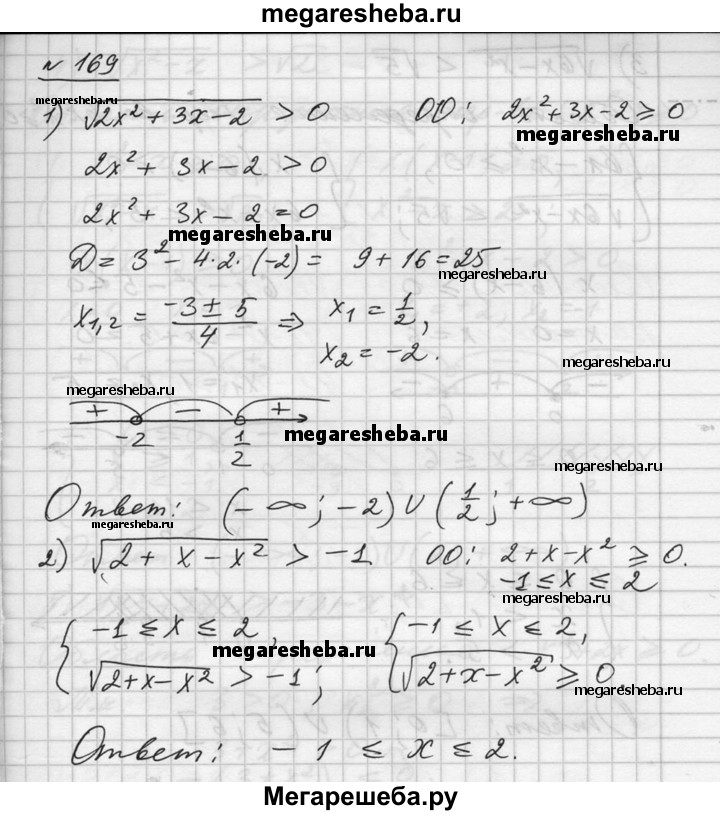 megaresheba.ru
№ 169
megaresheba.ru
1) √(2x² + 3x - 2) > 0 ОО: 2x² + 3x - 2 ⩾ 0
megaresheba.ru
2x² + 3x - 2 > 0
2x² + 3x - 2 = 0
megaresheba.ru
D = 3² - 4·2·(-2) = 9 + 16 = 25
megaresheba.ru
x₁,₂ = (-3 ± 5)/4 ⇒ x₁ = 1/2,
x₂ = -2.
megaresheba.ru
megaresheba.ru
+ - +
megaresheba.ru
-2 1/2
megaresheba.ru
Ответ: (-∞; -2) ∪ (1/2; +∞)
megaresheba.ru
2) √(2 + x - x²) > -1 ОО: 2 + x - x² ⩾ 0.
-1 ≤ x ≤ 2
megaresheba.ru
{ -1 ≤ x ≤ 2, { -1 ≤ x ≤ 2,
megaresheba.ru
√(2+x-x²) > -1; √(2+x-x²) ⩾ 0
megaresheba.ru
Ответ: -1 ≤ x ≤ 2.
Мегарешеба.ру